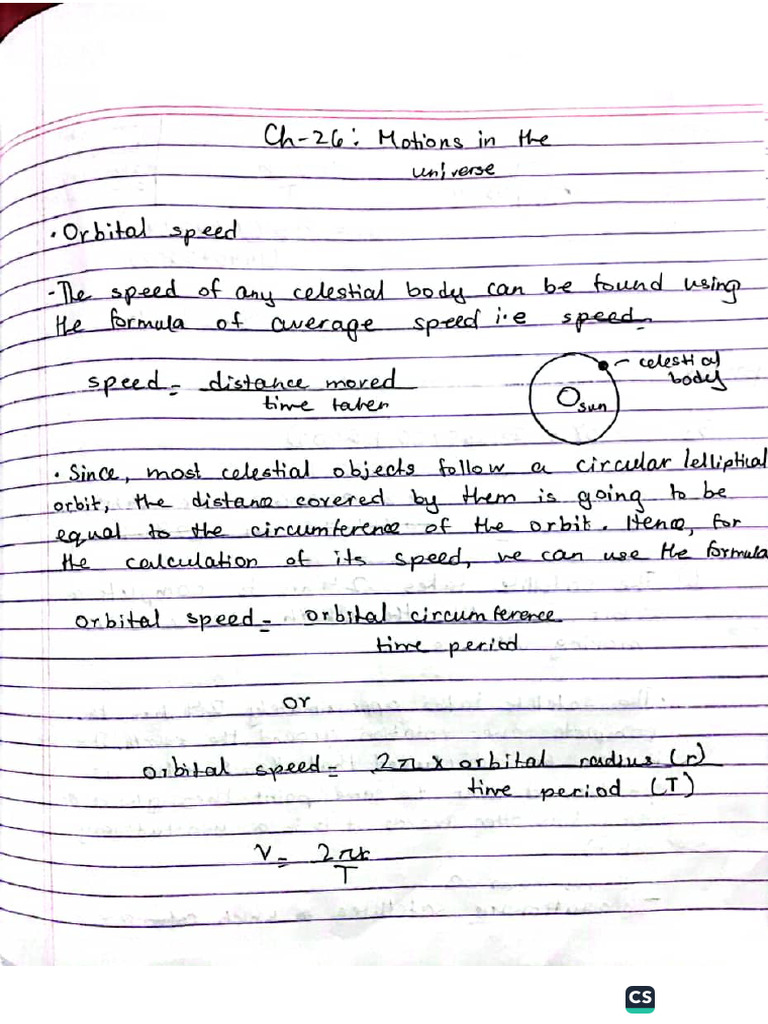 Ch-26: Motions in the
universe
• Orbital speed
- The speed of any celestial body can be found using
the formula of average speed i.e speed=
speed = distance moved
time taken
celestial
body
sun
• Since, most celestial objects follow a circular/elliptical
orbit, the distance covered by them is going to be
equal to the circumference of the orbit. Hence, for
the calculation of its speed, we can use the formula
orbital speed = orbital circumference
time period
or
orbital speed = 2π x orbital radius (r)
time period (T)
V = 2πr
T
CS